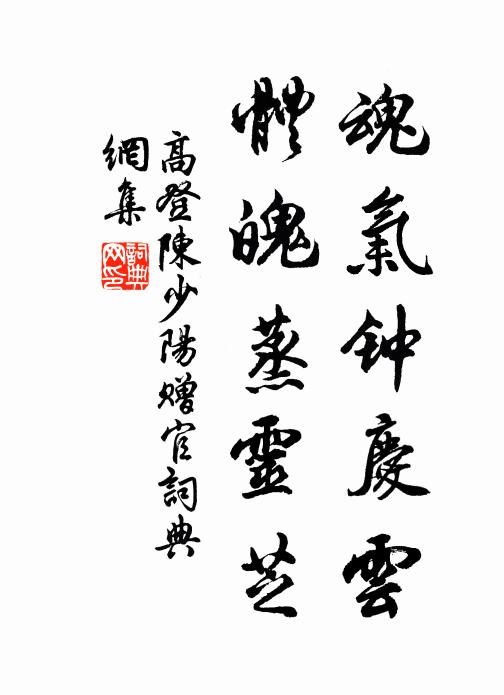 魂氣钟慶雲
體魄蒸靈芝
高登陳少陽贈官詞典
網集
詞典網印